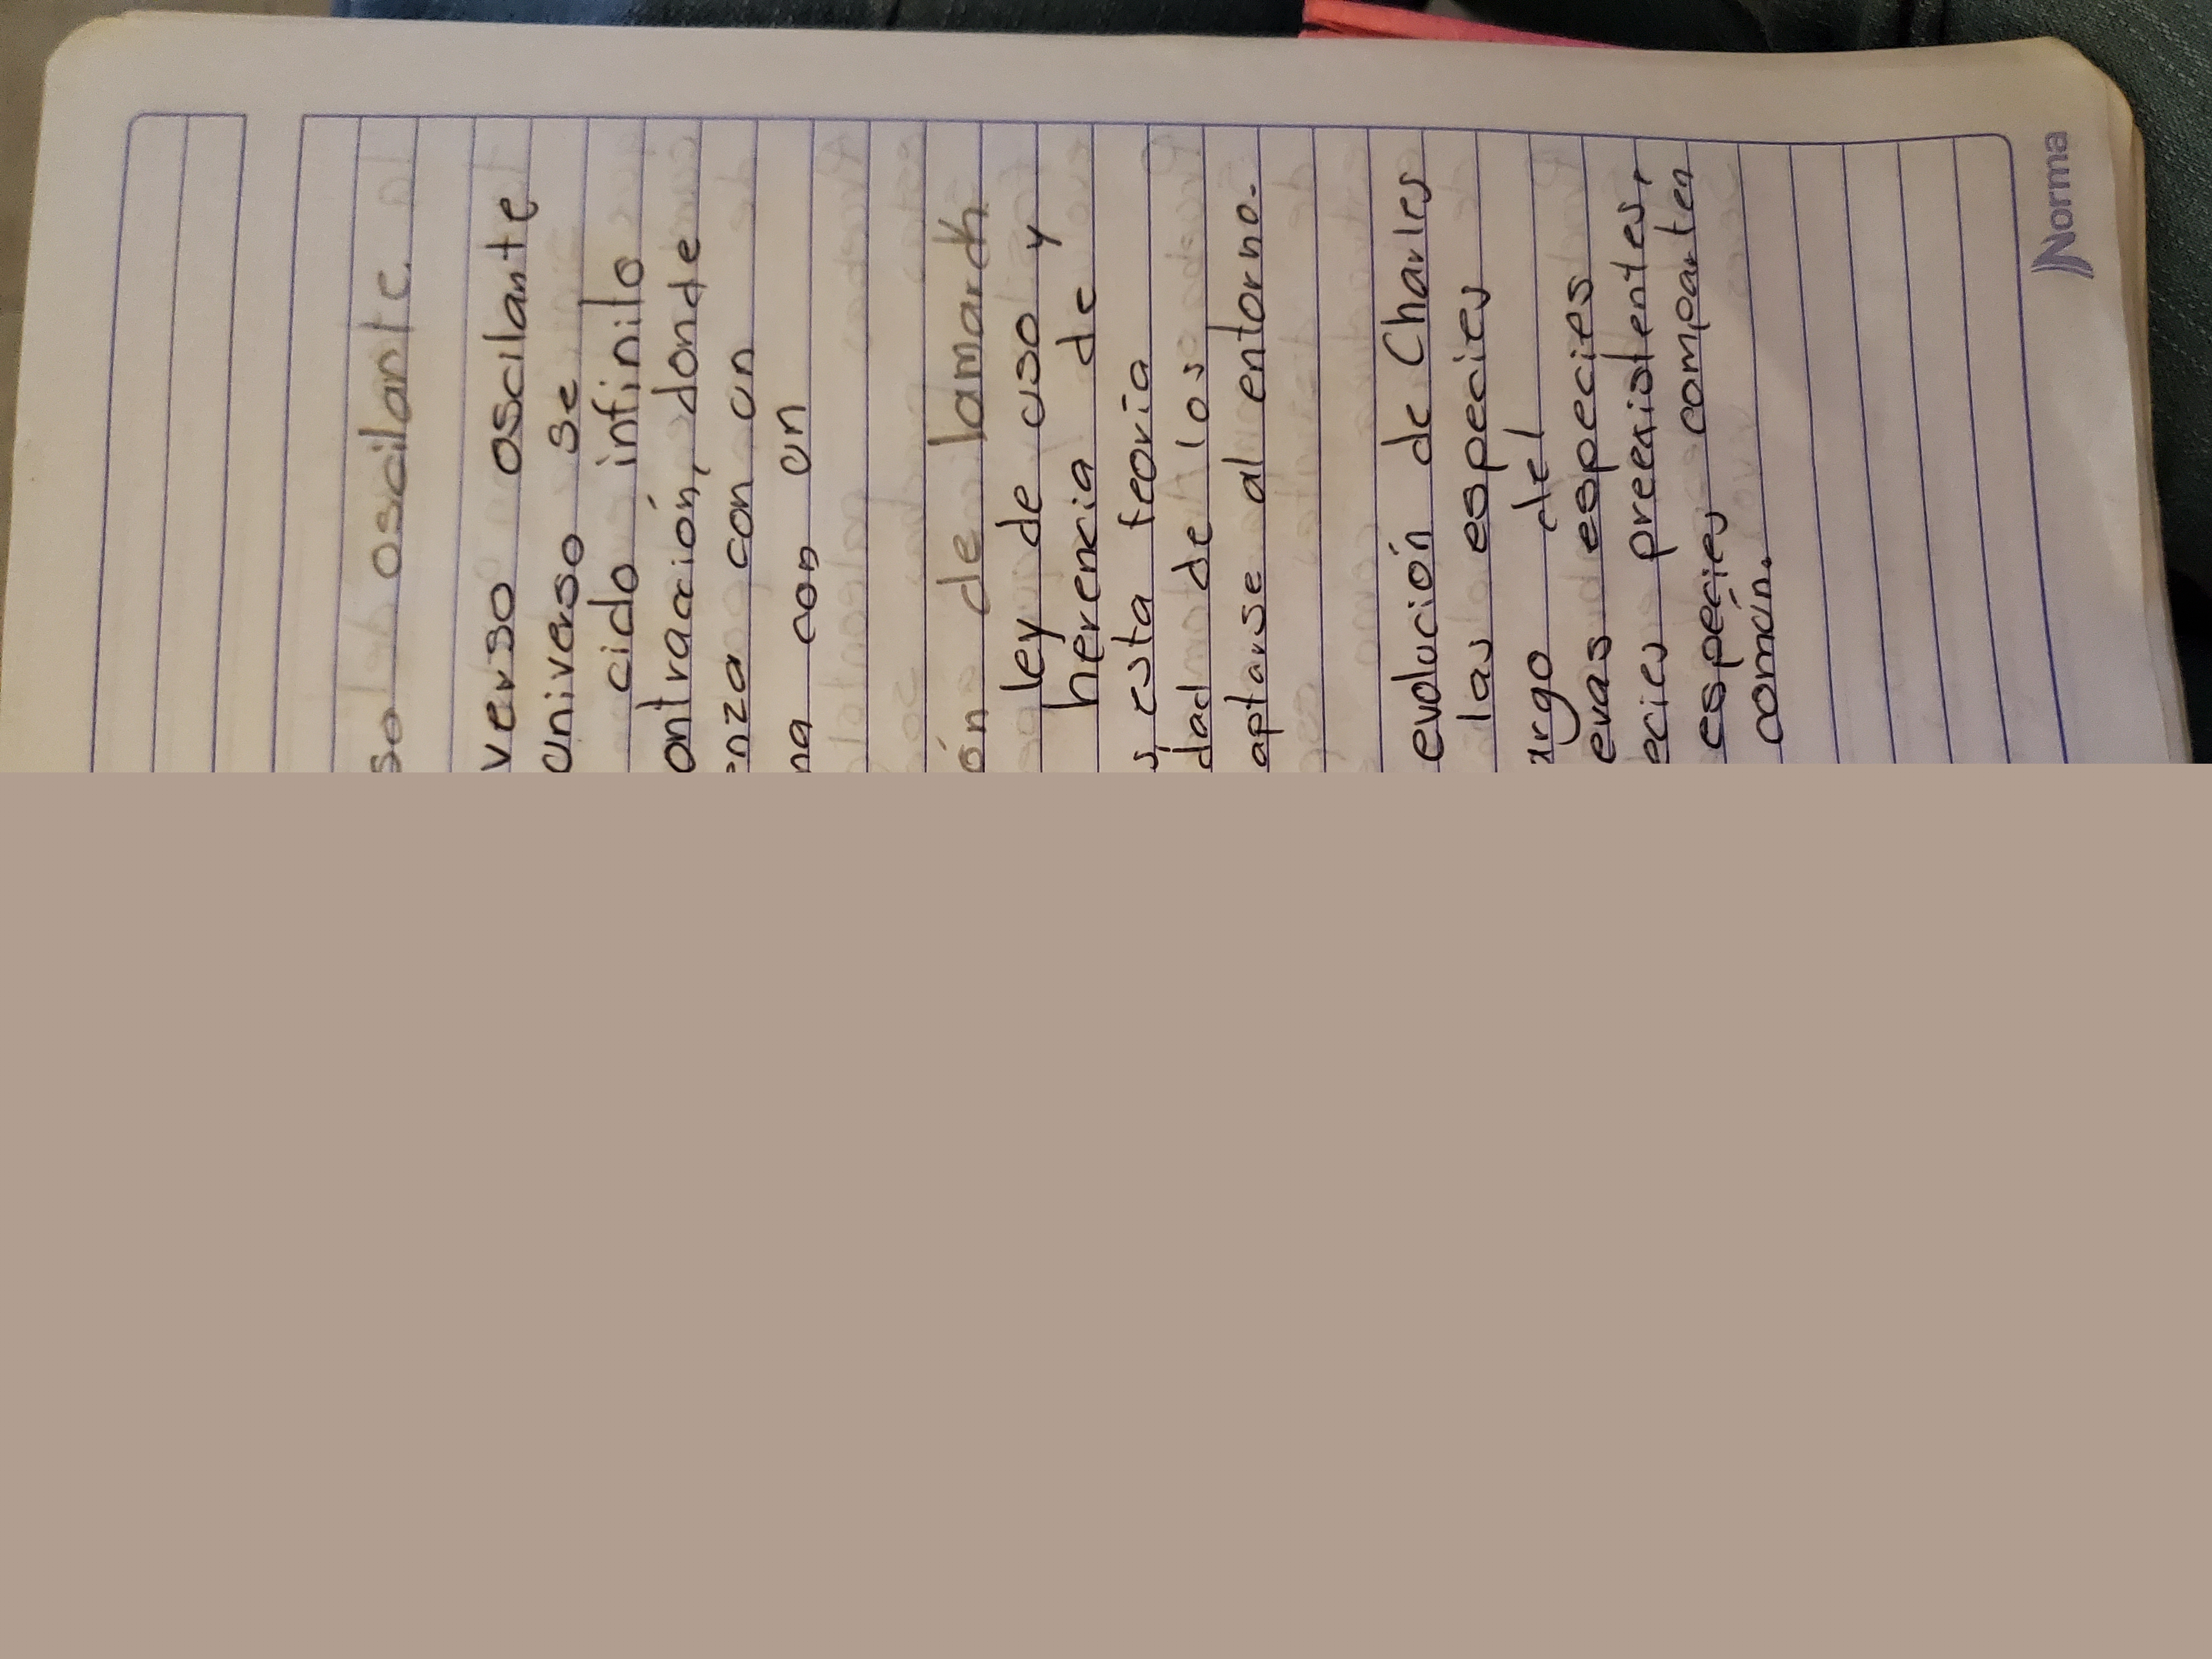 so oscilante.
verso oscilante
universo se
cido infinito
ontracción, donde
enza con un
na con un
ón de lamarck
ley de uso y
herencia de
s esta teoría
dad de los
aptarse al entorno.
evolución de Charles
las especies
argo del
evas especies
ecies preexistentes,
especies comparten
común.
Norma